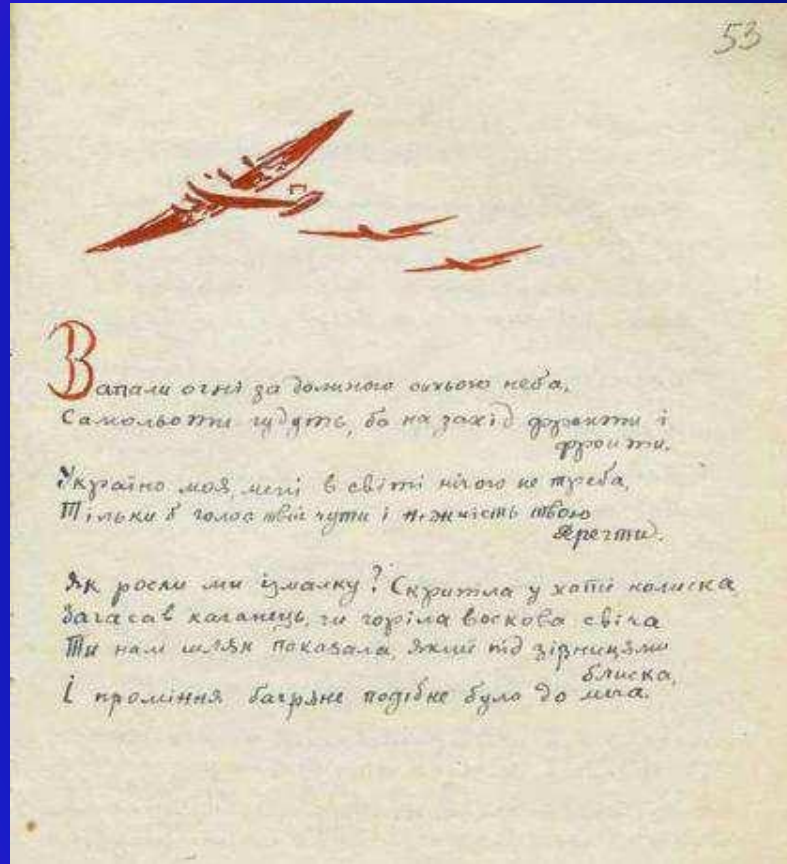 53
Запали огні за долиною синього неба,
Самольоти гудуть, бо на захід фронти і
фронти.
Україно моя, мені в світі нічого не треба,
Тільки б голос твій чути і ніжність твою
берегти.
Як росли ми ізмалку? Скрипіла у хаті колиска
Загасав каганець, чи горіла воскова свіча
Ти нам шлях показала, який під зірницями
блиска,
І проміння багряне подібне було до меча.